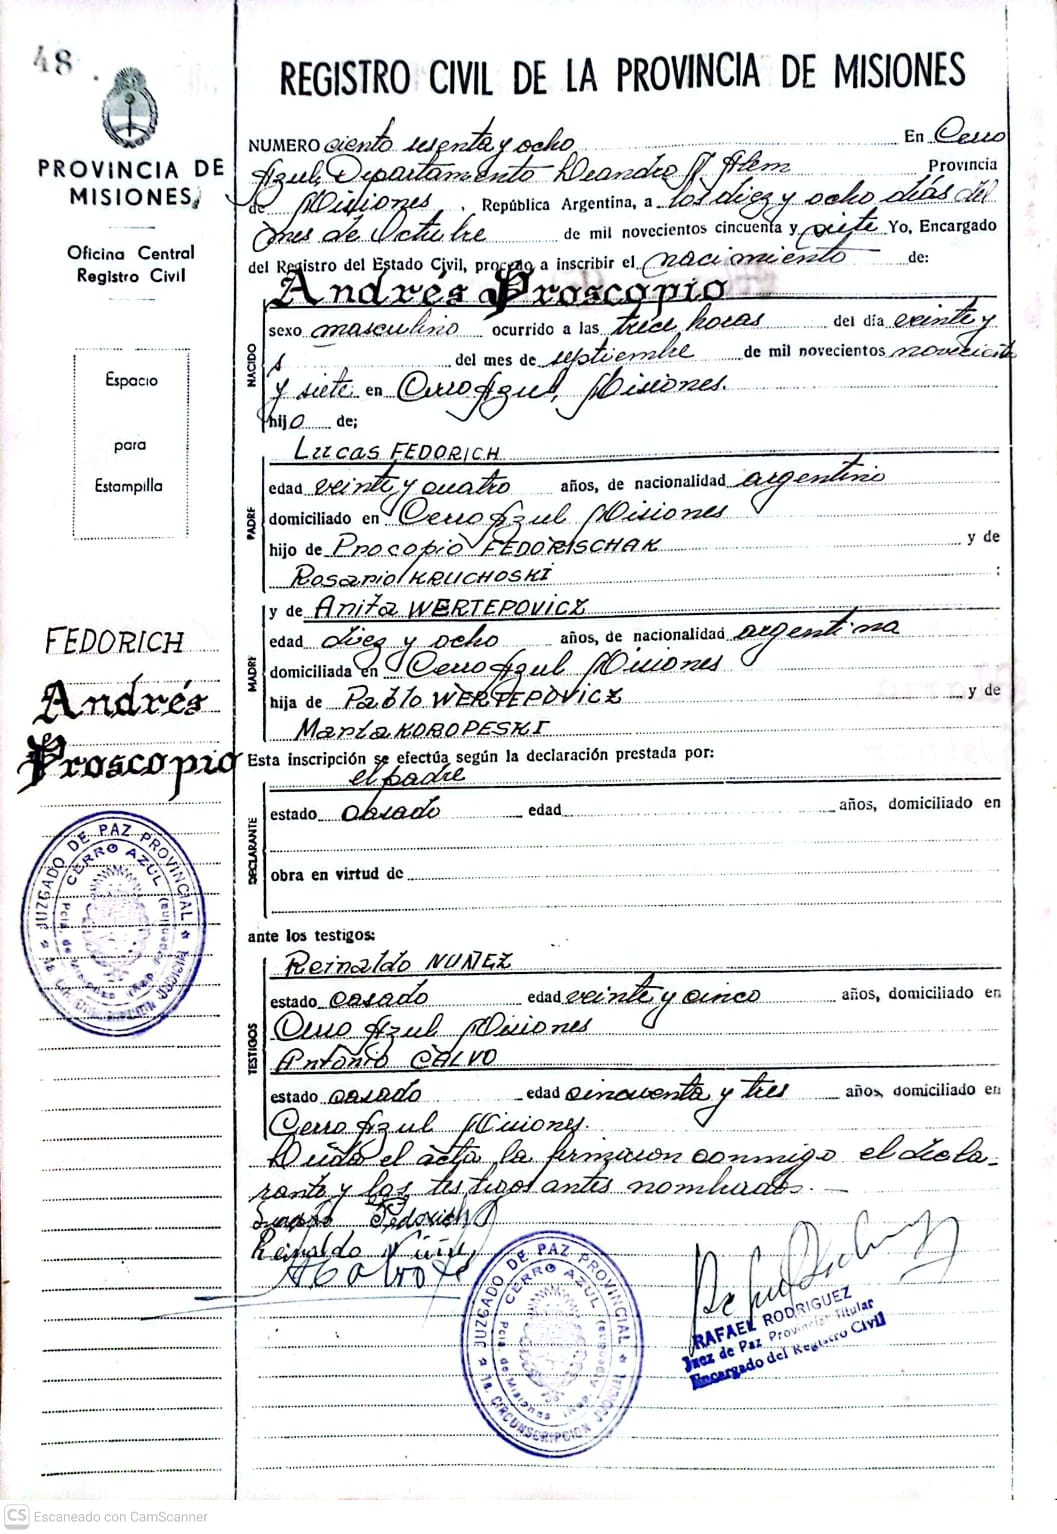 48
PROVINCIA DE
MISIONES
Oficina Central
Registro Civil
Espacio
para
Estampilla
FEDORICH
Andrés
Proscopio
JUZGADO DE PAZ PROVINCIAL
CERRO AZUL
REGISTRO CIVIL DE LA PROVINCIA DE MISIONES
NUMERO ciento sesenta y ocho En Cerro
Azul, Departamento Leandro N Alem Provincia
de Misiones, República Argentina, a los diez y ocho días del
mes de Octubre de mil novecientos cincuenta y siete Yo, Encargado
del Registro del Estado Civil, procedo a inscribir el nacimiento de:
Andrés Proscopio
NACIDO
sexo masculino ocurrido a las trece horas del día veinte y
del mes de septiembre de mil novecientos
y siete en Cerro Azul, Misiones.
hijo de;
PADRE
Lucas FEDORICH
edad veinte y cuatro años, de nacionalidad argentino
domiciliado en Cerro Azul Misiones
hijo de Procopio FEDORISCHAK y de
Rosario KRUCHOSKI ;
MADRE
y de Anita WERTEPOVICZ
edad diez y ocho años, de nacionalidad argentina
domiciliada en Cerro Azul Misiones
hija de Pablo WERTEPOVICZ y de
María KOROPESKI
Esta inscripción se efectúa según la declaración prestada por:
DECLARANTE
el padre
estado casado edad años, domiciliado en
obra en virtud de
ante los testigos:
TESTIGOS
Reinaldo NUÑEZ
estado casado edad veinte y cinco años, domiciliado en
Cerro Azul Misiones
Antonio CALVO
estado casado edad cincuenta y tres años, domiciliado en
Cerro Azul Misiones.
Leida el acta la firmaron conmigo el decla-
rante y los testigos antes nombrados.—
Fedorich
Reinaldo Núñez
A Calvo
JUZGADO DE PAZ PROVINCIAL
CERRO AZUL
Pcia. de Misiones (Rep. Argentina)
1a. CIRCUNSCRIPCION JUDICIAL
RAFAEL RODRIGUEZ
Juez de Paz Provincial Titular
Encargado del Registro Civil
CS Escaneado con CamScanner